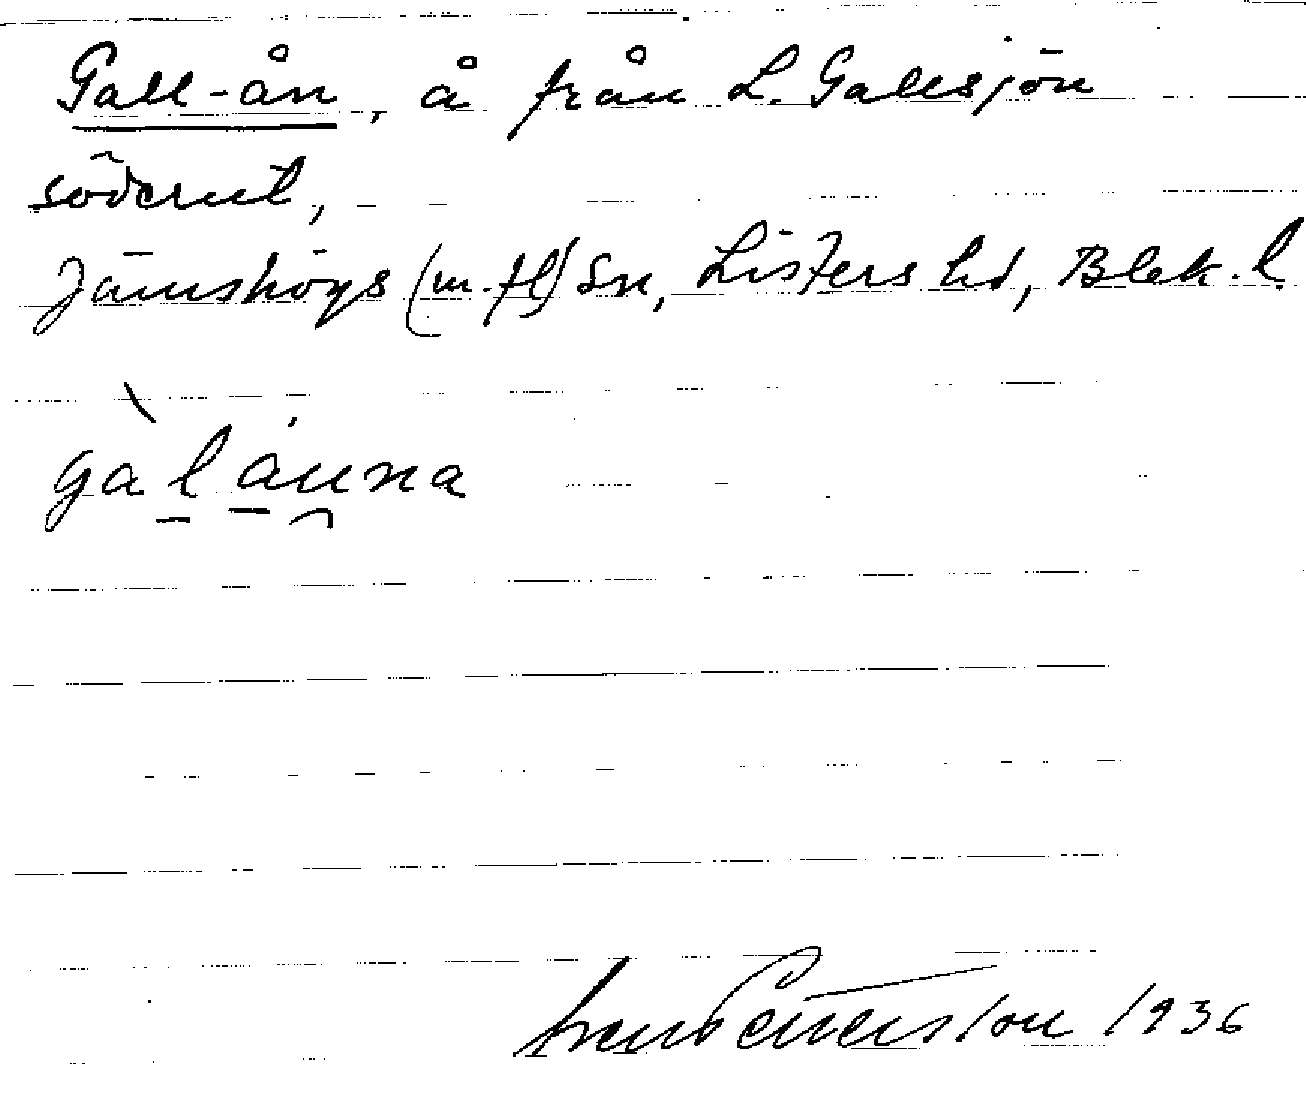 Gall-ån, å från L. Gallsjön
söderut,
Jämshögs (m.fl) Sn, Listers hd, Blek. l.
gàlánna
Petterson 1936